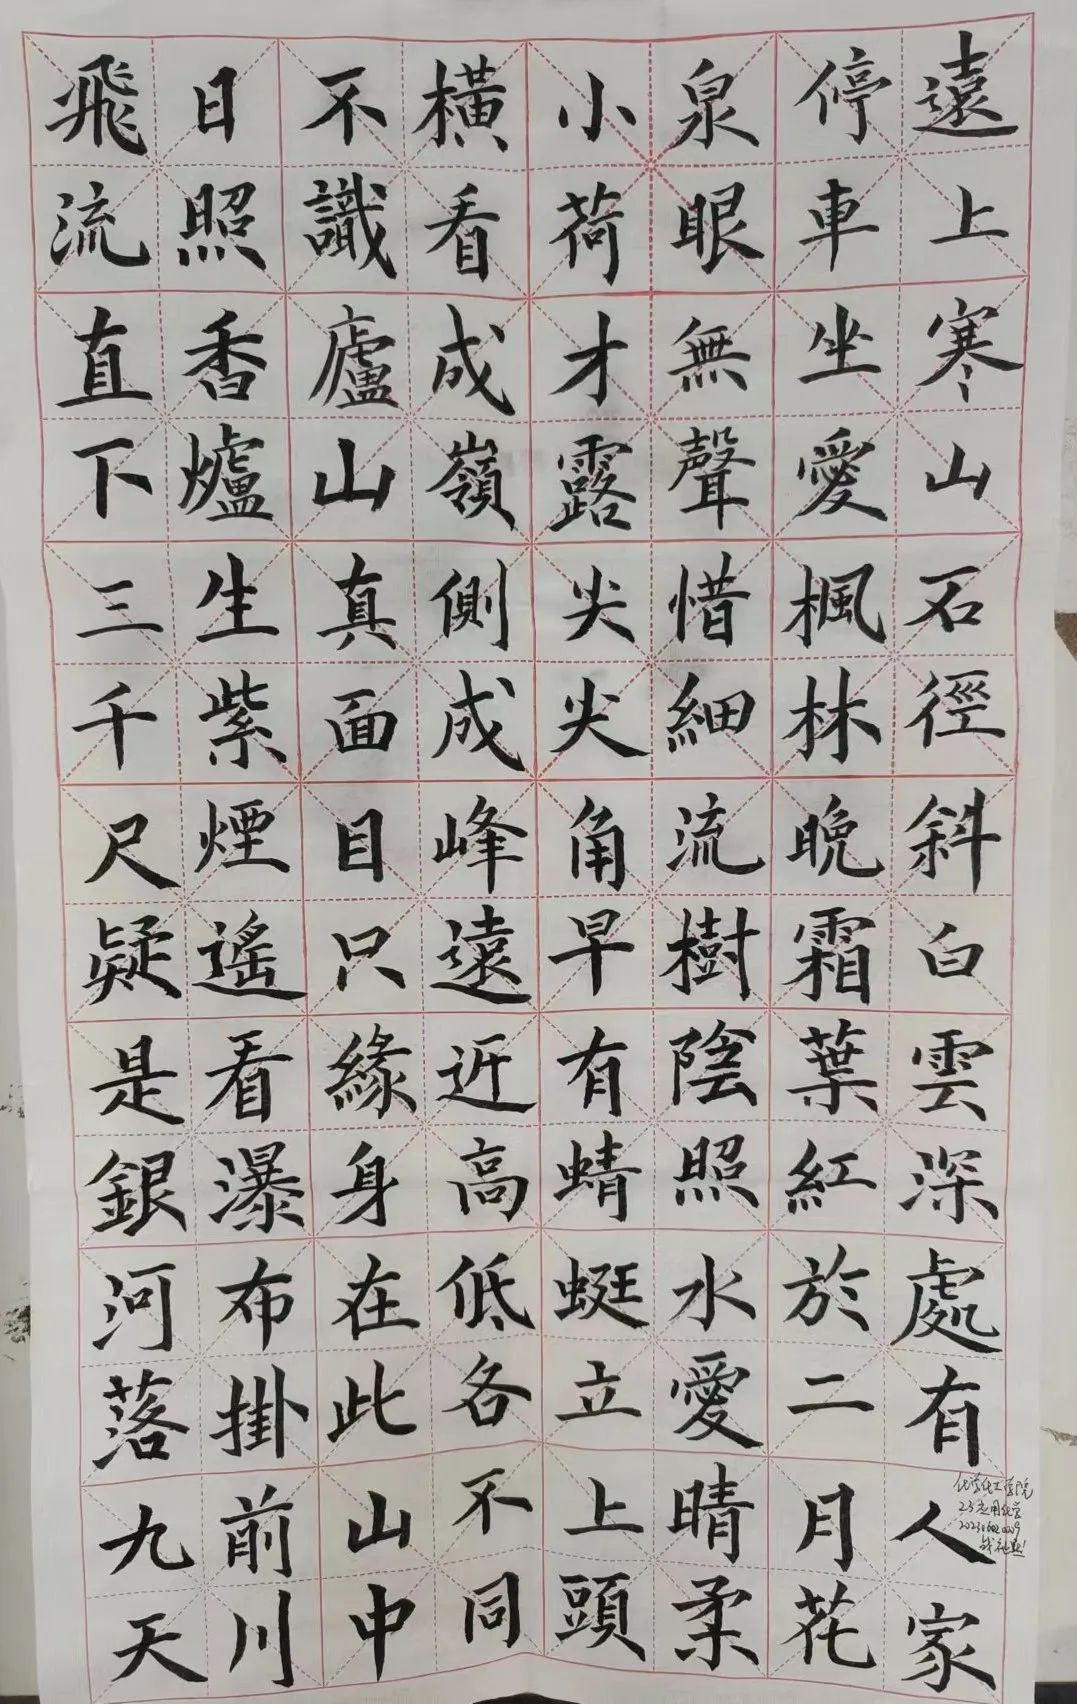 遠上寒山石徑斜白雲深處有人家
停車坐愛楓林晚霜葉紅於二月花
泉眼無聲惜細流樹陰照水愛晴柔
小荷才露尖尖角早有蜻蜓立上頭
橫看成嶺側成峰遠近高低各不同
不識廬山真面目只緣身在此山中
日照香爐生紫煙遙看瀑布掛前川
飛流直下三千尺疑是銀河落九天
化学化工学院
23应用化学